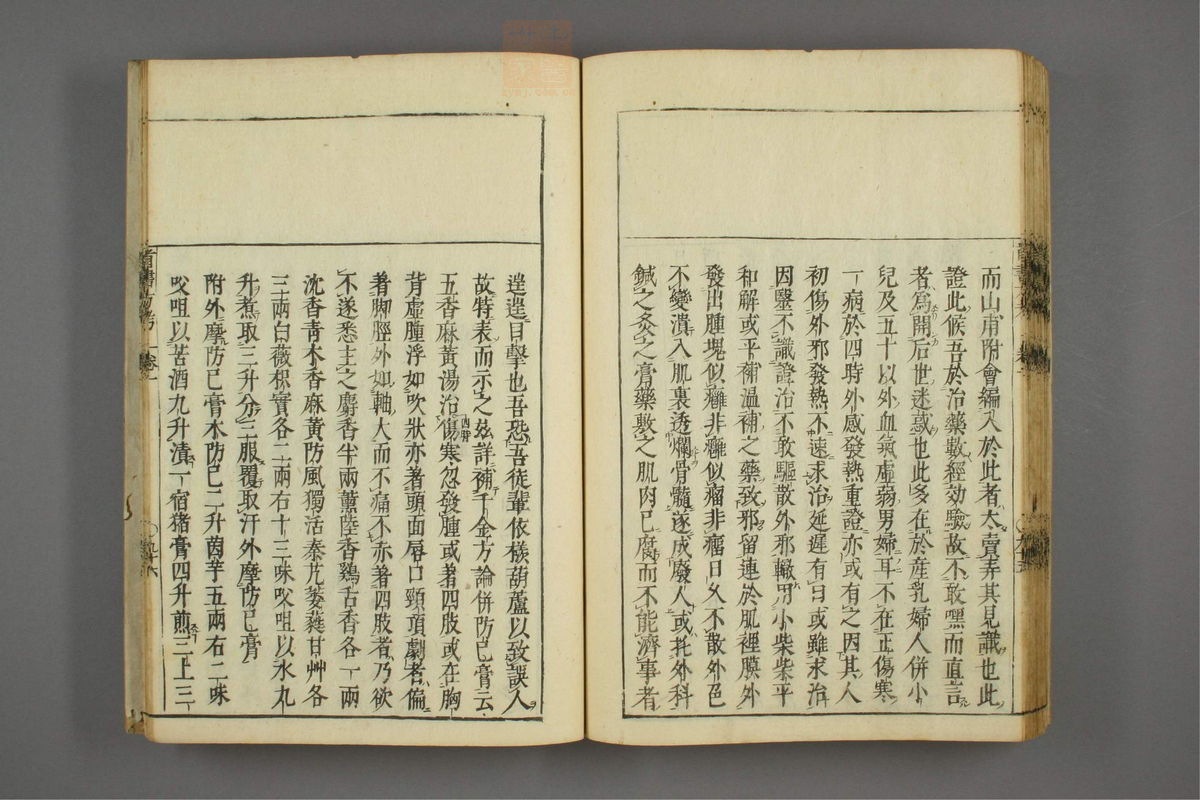 而山甫附會編入於此者太賣弄其見識也此
證此候吾於治藥數經効驗故不敢嘿而直言
者爲開后世迷惑也此多在於産乳婦人併小
兒及五十以外血氣虛弱男婦耳不在正傷寒
一病於四時外感發熱重證亦或有之因其人
初傷外邪發熱不速求治延遲有日或雖求治
因醫不識證治不敢驅散外邪輙用小柴柴平
和解或平補溫補之藥致邪留連於肌裡膜外
發出腫塊似癰非癰似瘤非瘤日久不散外色
不變潰入肌裏透爛骨髓遂成廢人或托外科
鍼之灸之膏藥敷之肌肉已腐而不能濟事者
遑遑目擊也吾恐吾徒輩依樣葫蘆以致誤人
故特表而示之玆詳補千金方論併防已膏云
五香麻黃湯治傷寒忽發腫或著四肢或在胸
背虛腫浮如吹狀亦著頭面唇口頸項劇者偏
著脚脛外如軸大而不痛不赤著四肢者乃欲
不遂悉主之麝香半兩薰陸香鷄舌香各一兩
沈香青木香麻黃防風獨活秦艽萎蕤甘艸各
三兩白薇枳實各二兩右十三味㕮咀以水九
升煮取三升分三服覆取汗外摩防已膏
附外摩防已膏木防已二升茵芋五兩右二味
㕮咀以苦酒九升漬一宿猪膏四升煎三上三